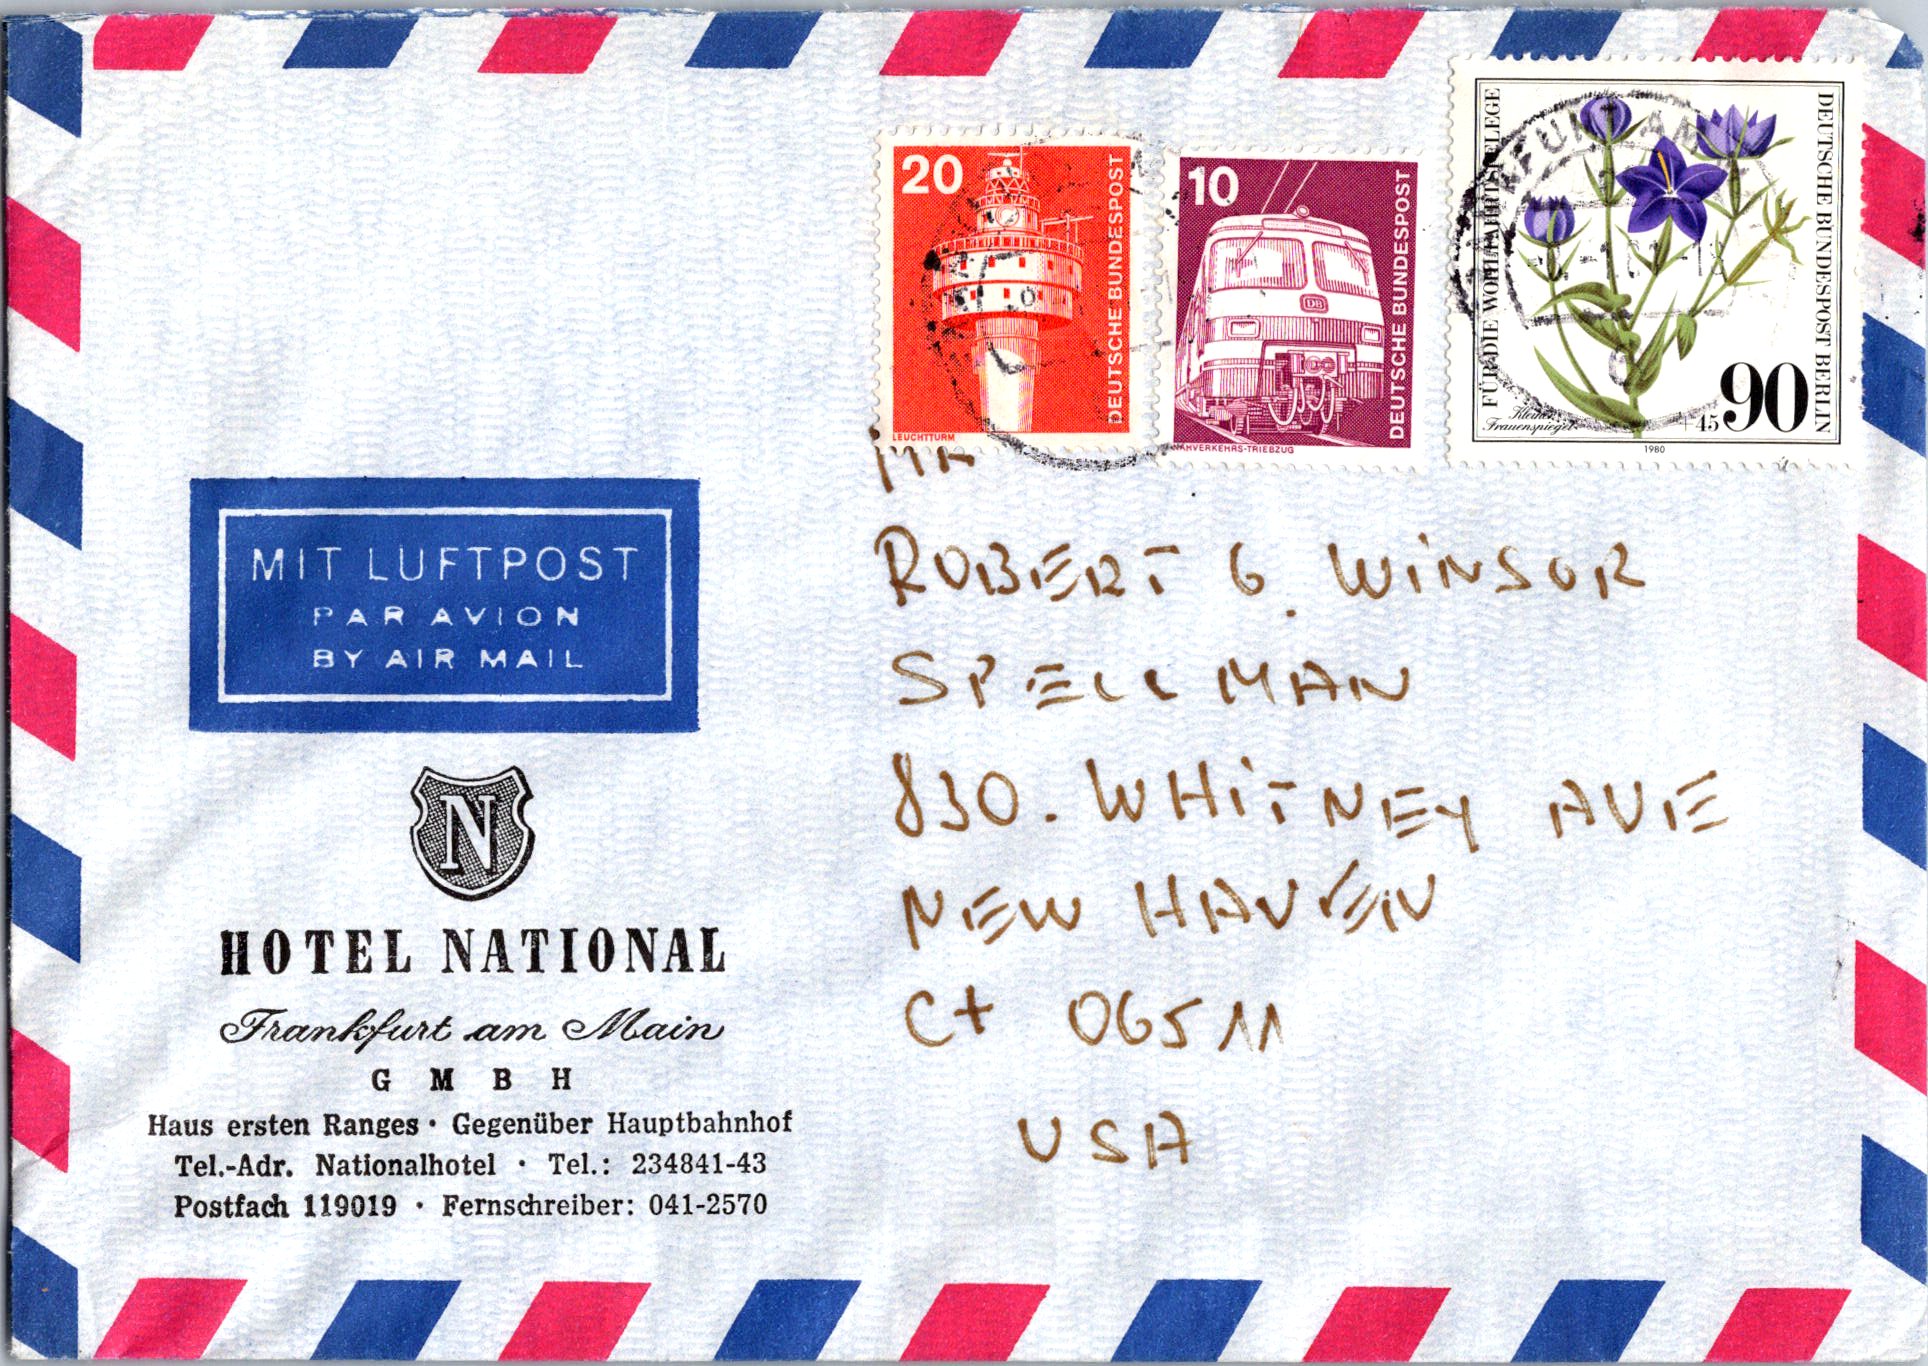 20
DEUTSCHE BUNDESPOST
LEUCHTTURM
10
DEUTSCHE BUNDESPOST
NAHVERKEHRS-TRIEBZUG
FÜR DIE WOHLFAHRTSPFLEGE
DEUTSCHE BUNDESPOST BERLIN
Kleiner
Frauenspiegel
+45 90
1980
MR
ROBERT G. WINSOR
SPELLMAN
830. WHITNEY AVE
NEW HAVEN
Ct 06511
USA
MIT LUFTPOST
PAR AVION
BY AIR MAIL
N
HOTEL NATIONAL
Frankfurt am Main
GMBH
Haus ersten Ranges · Gegenüber Hauptbahnhof
Tel.-Adr. Nationalhotel · Tel.: 234841-43
Postfach 119019 · Fernschreiber: 041-2570